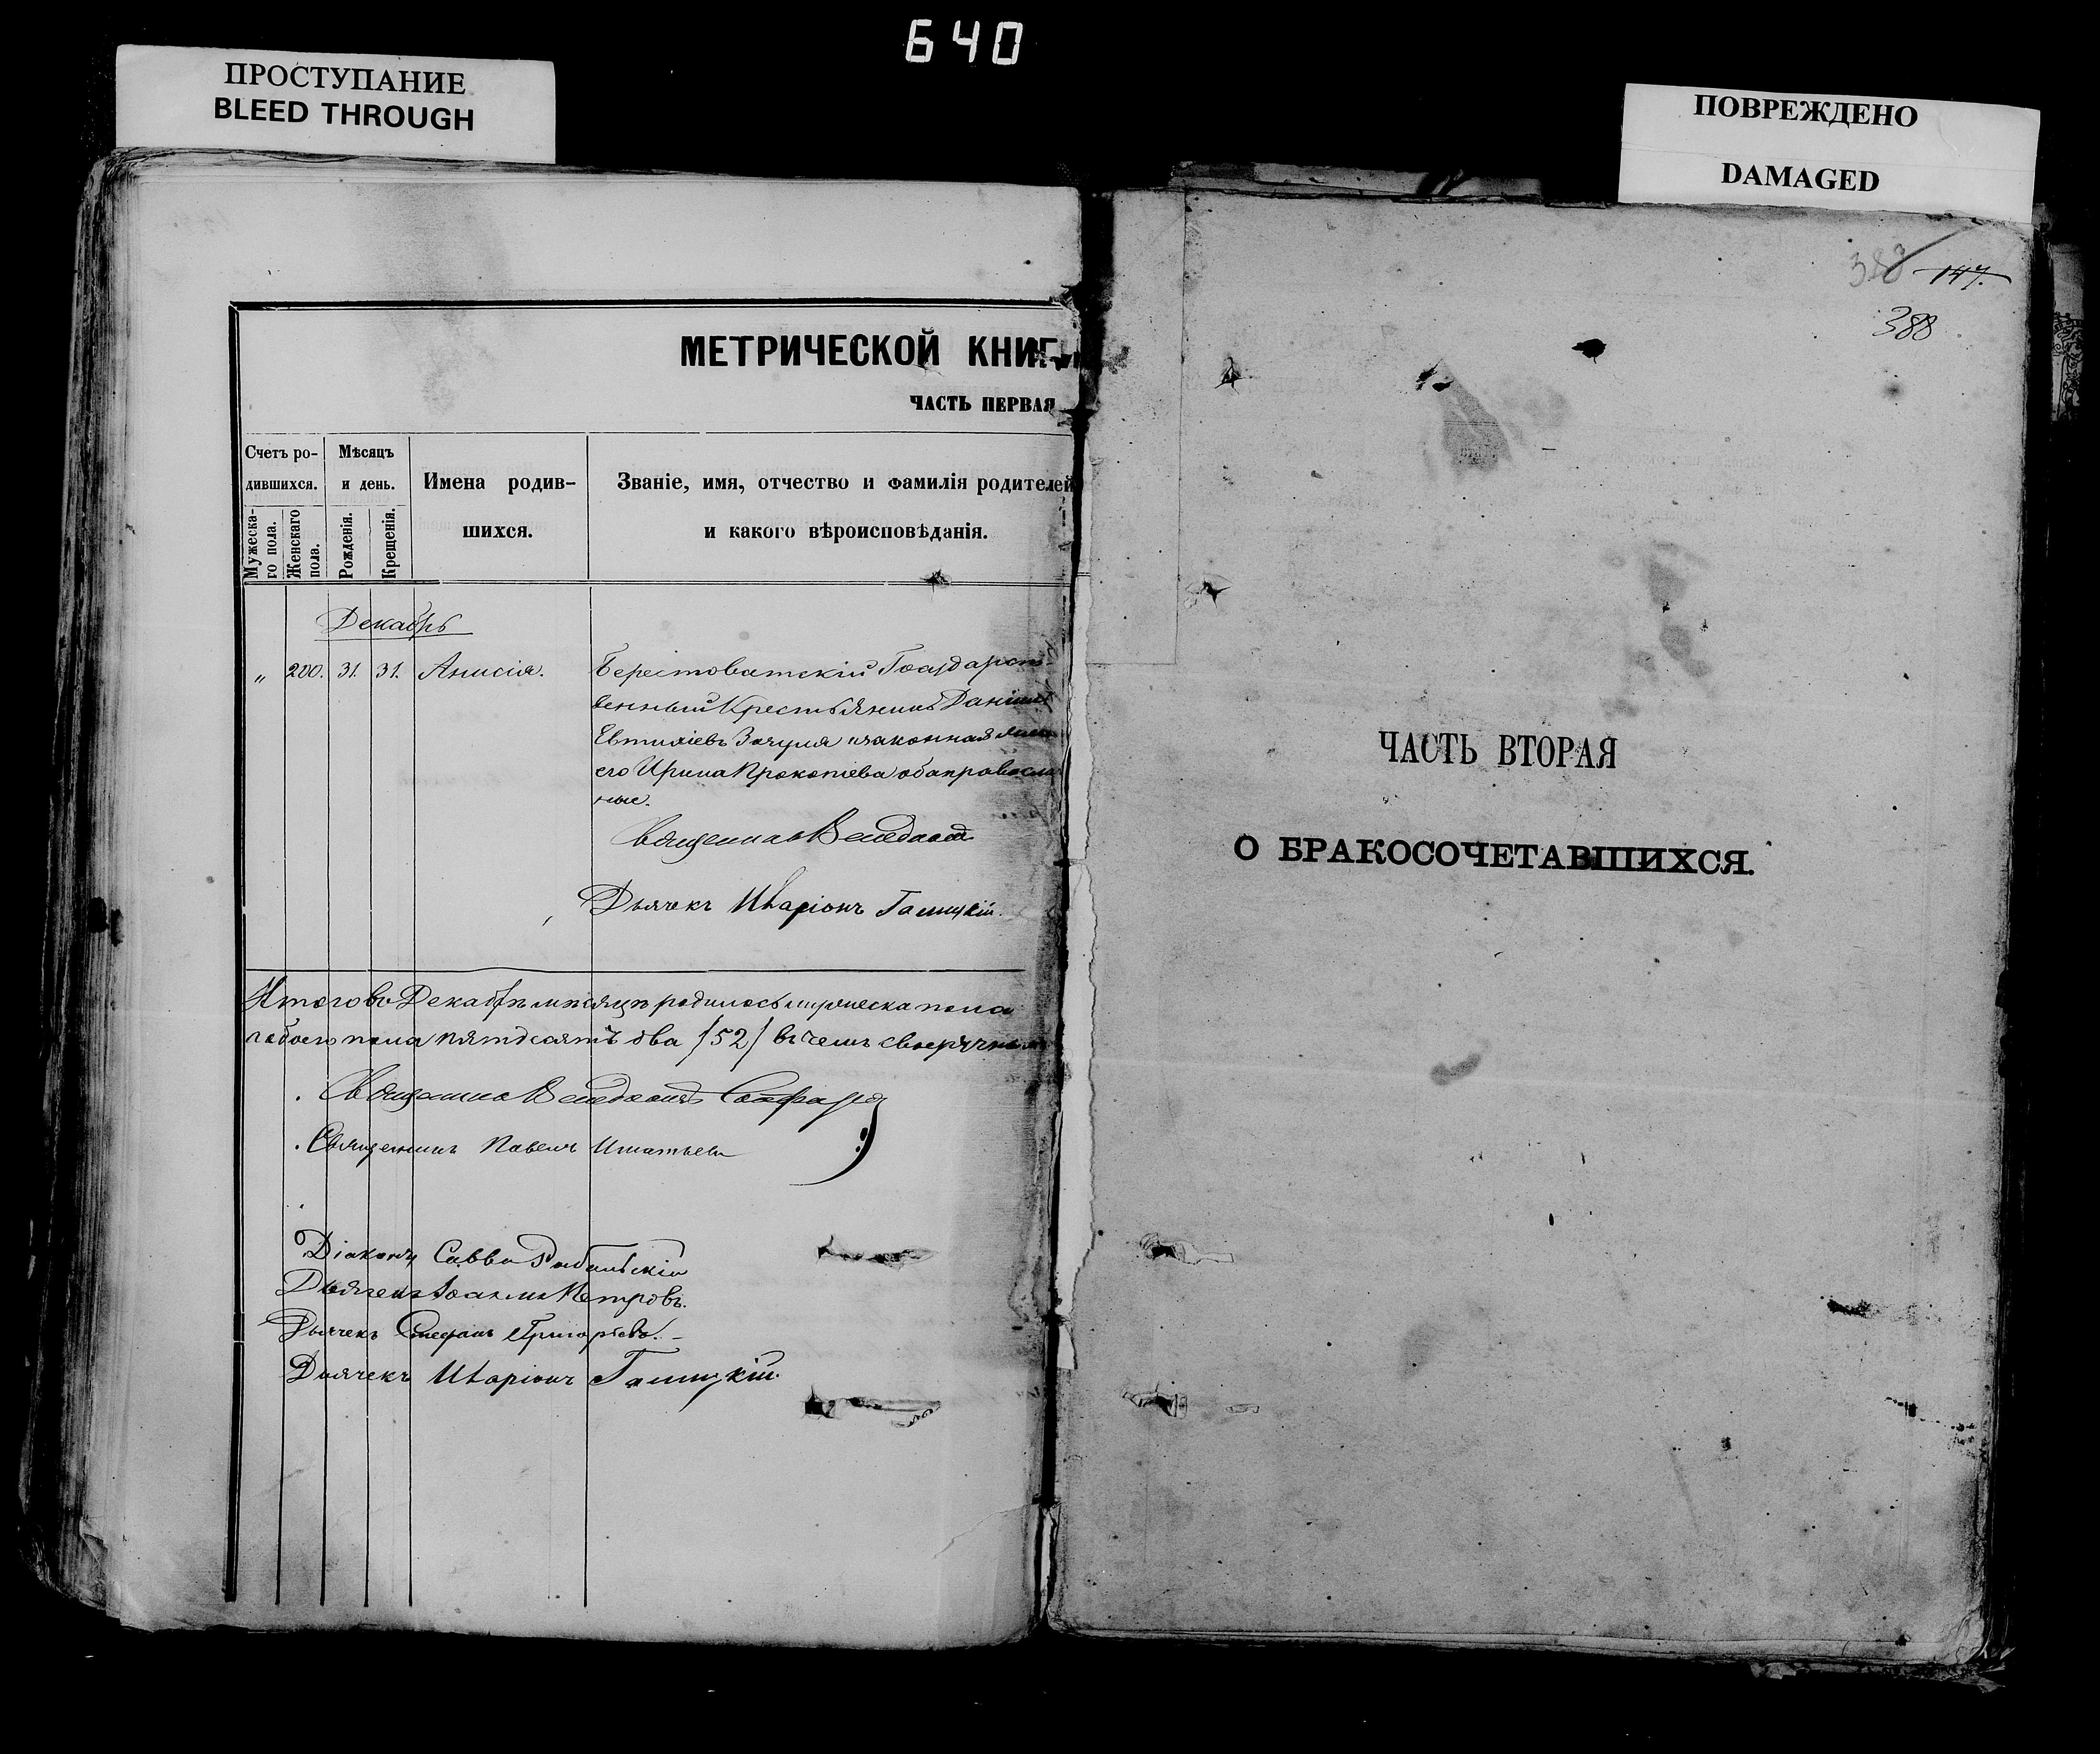 640
ПРОСТУПАНИЕ
BLEED THROUGH
МЕТРИЧЕСКОЙ КНИГИ
ЧАСТЬ ПЕРВАЯ
Счетъ ро-
дившихся.
Мужеска-
го пола.
Женскаго
пола.
Мѣсяцъ
и день.
Рожденія.
Крещенія.
Имена родив-
шихся.
Званіе, имя, отчество и фамилія родителей
и какого вѣроисповѣданія.
Декабрь
" 200. 31. 31. Анисія. Берестоватскій Государст-
венный Крестьянинъ Даніилъ
Евтихіевъ и законная жена
его Ирина Прокопіева оба православ
ные.
Священникъ
Дьячекъ Иларіонъ Галицкій.
Итого въ Декабрѣ мѣсяцѣ родилось мужеска пола
обоего пола пятдесятъ два /52/ въ чемъ
Священникъ
Священникъ Павелъ Игнатьевъ
Діаконъ Савва
Дьячекъ Іоаннъ Петровъ.
Дьячекъ Стефанъ Григорьевъ.
Дьячекъ Иларіонъ Галицкій.
ПОВРЕЖДЕНО
DAMAGED
388 147.
388
ЧАСТЬ ВТОРАЯ
О БРАКОСОЧЕТАВШИХСЯ.